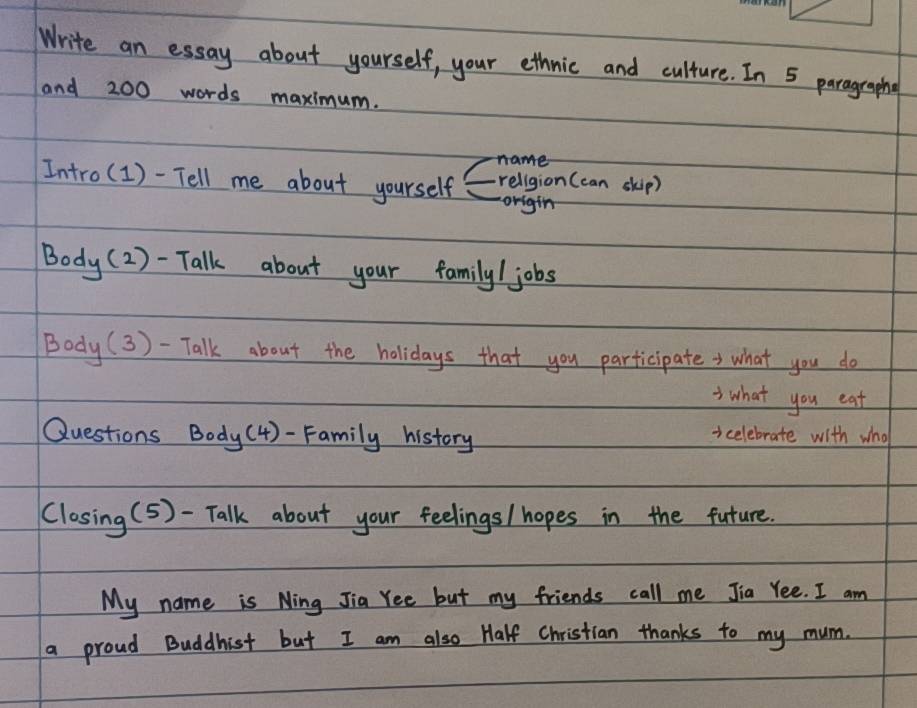 Markah
Write an essay about yourself, your ethnic and culture. In 5 paragraphs
and 200 words maximum.
Intro (1) - Tell me about yourself
name
religion (can skip)
origin
Body (2) - Talk about your family/jobs
Body (3) - Talk about the holidays that you participate → what you do
→ what you eat
→ celebrate with who
Questions Body (4) - Family history
Closing (5) - Talk about your feelings/hopes in the future.
My name is Ning Jia Yee but my friends call me Jia Yee. I am
a proud Buddhist but I am also Half Christian thanks to my mum.